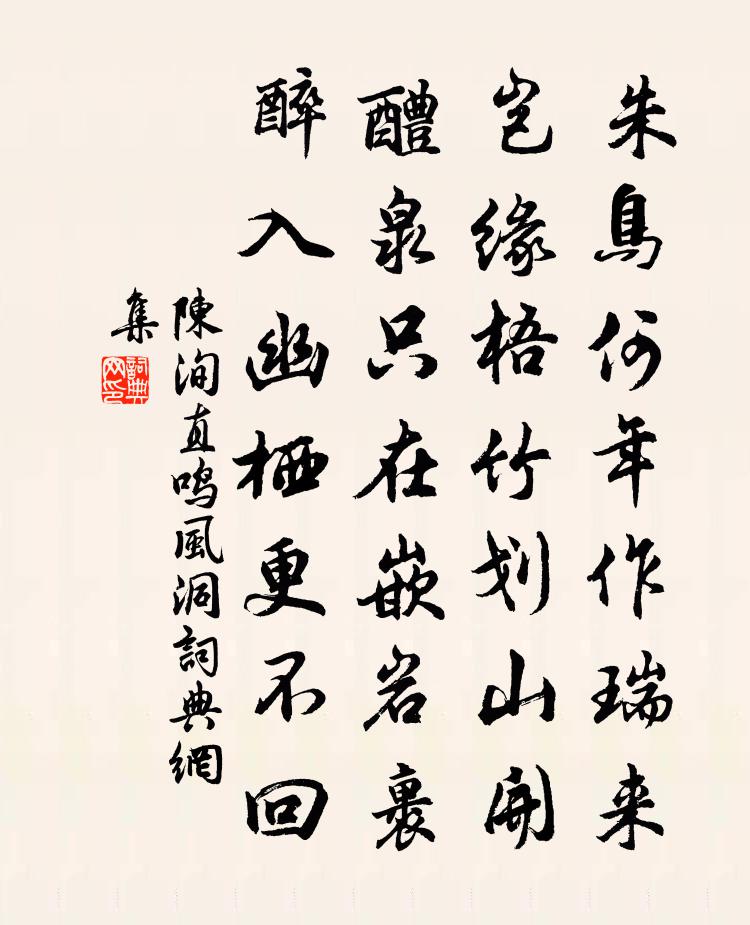 朱鳥何年作瑞来
岂缘梧竹划山開
醴泉只在嵌岩裏
醉入幽栖更不回
陳洵直鳴風洞詞典網
集
詞典
网印